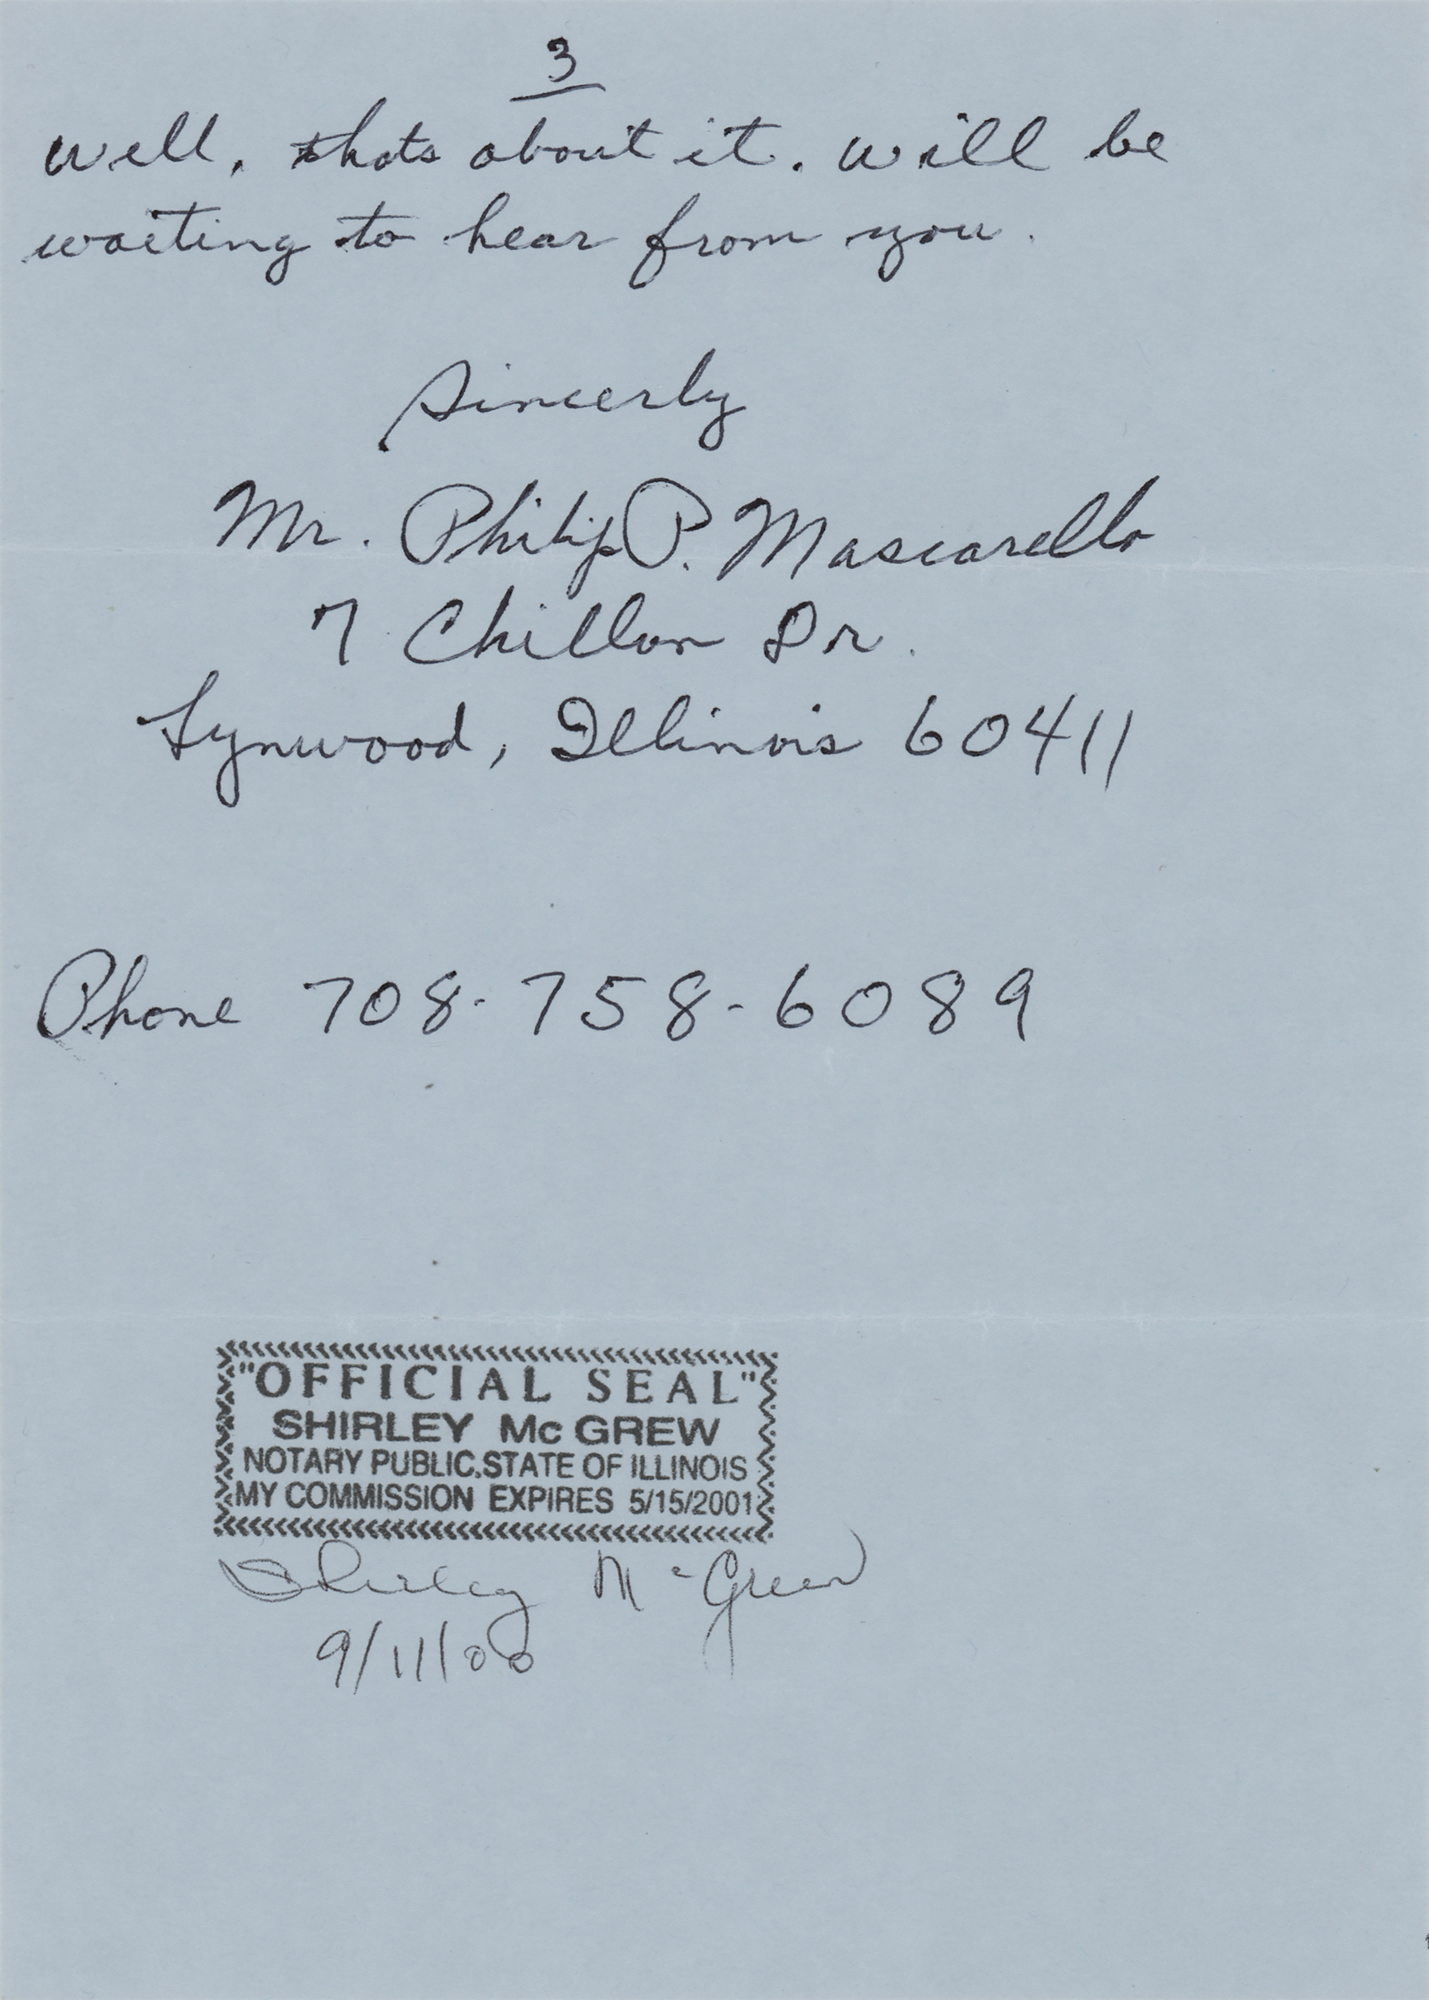 3
well, thats about it. will be
waiting to hear from you.
Sincerly
Mr. Philip P. Mascarello
7 Chillon Dr.
Lynwood, Illinois 60411
Phone 708-758-6089
"OFFICIAL SEAL"
SHIRLEY Mc GREW
NOTARY PUBLIC, STATE OF ILLINOIS
MY COMMISSION EXPIRES 5/15/2001
Shirley McGrew
9/11/00